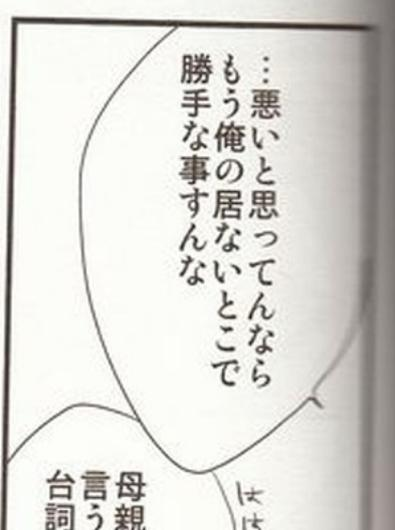 …悪いと思ってんなら
もう俺の居ないとこで
勝手な事すんな
母親
言う
台詞